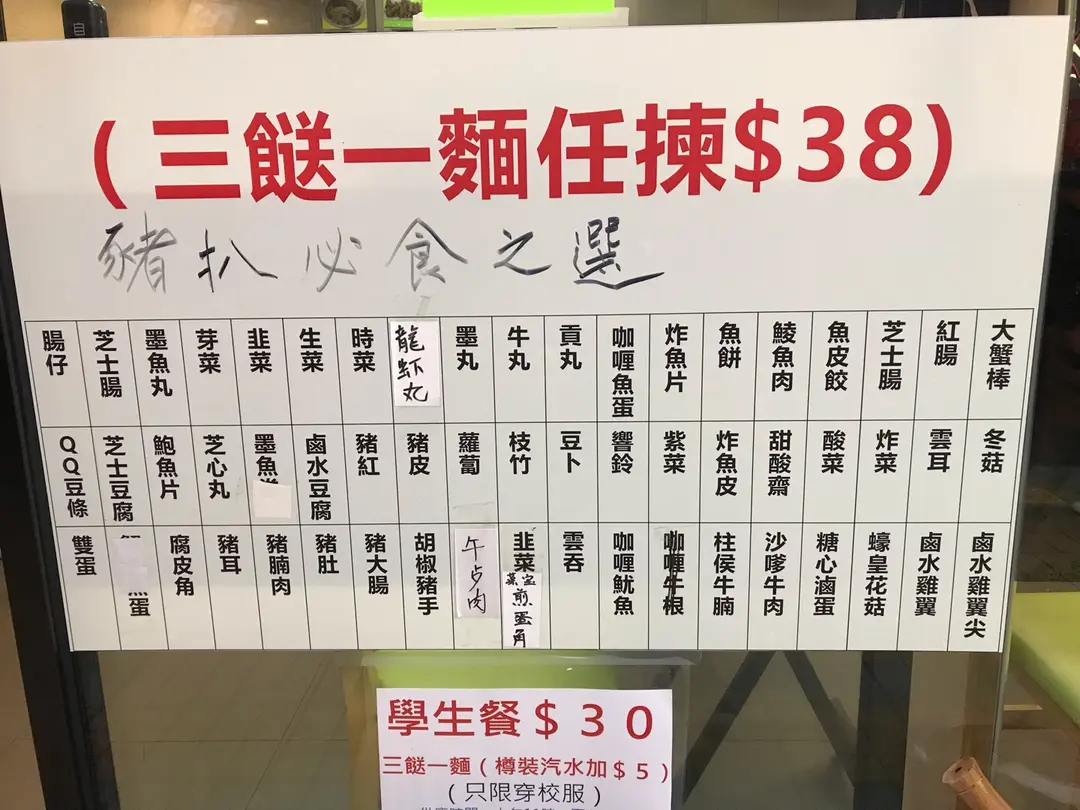 (三餸一麵任揀$38)
豬扒必食之選
腸仔
芝士腸
墨魚丸
芽菜
韭菜
生菜
時菜
龍虾丸
墨丸
牛丸
貢丸
咖喱魚蛋
炸魚片
魚餅
鯪魚肉
魚皮餃
芝士腸
紅腸
大蟹棒
QQ豆條
芝士豆腐
鮑魚片
芝心丸
墨魚
鹵水豆腐
豬紅
豬皮
蘿蔔
枝竹
豆卜
響鈴
紫菜
炸魚皮
甜酸齋
酸菜
炸菜
雲耳
冬菇
雙蛋
蛋
腐皮角
豬耳
豬腩肉
豬肚
豬大腸
胡椒豬手
午歺肉
韭菜
煎蛋角
雲吞
咖喱魷魚
咖喱牛根
柱侯牛腩
沙嗲牛肉
糖心滷蛋
蠔皇花菇
鹵水雞翼
鹵水雞翼尖
學生餐$30
三餸一麵(樽裝汽水加$5)
(只限穿校服)